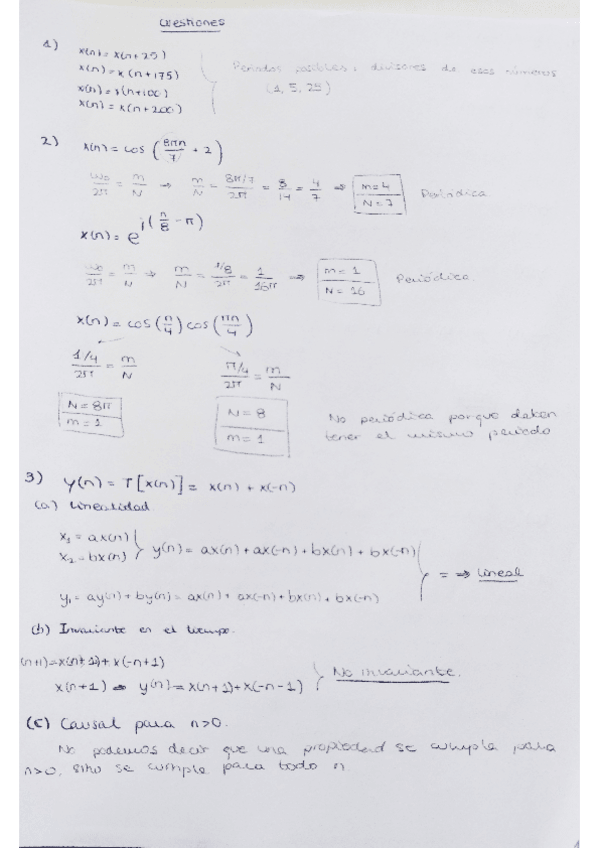 Cuestiones
1) x(n) = x(n+25)
x(n) = x(n+175)
x(n) = x(n+100)
x(n) = x(n+200)
Periodos posibles: divisores de esos números
(1, 5, 25)
2) x(n) = cos (8πn/7 + 2)
ω0/2π = m/N ⇒ m/N = 8π/7/2π = 8/14 = 4/7 ⇒ m=4 N=7 Periódica
x(n) = e^j(n/8 - π)
ω0/2π = m/N ⇒ m/N = 1/8/2π = 1/16π ⇒ m=1 N=16 Periódica
x(n) = cos(n/4) cos(πn/4)
1/4/2π = m/N π/4/2π = m/N
N=8π m=1 N=8 m=1
No periódica porque deben
tener el mismo periodo
3) y(n) = T[x(n)] = x(n) + x(-n)
(a) Linealidad
x1 = ax(n)
x2 = bx(n) } y(n) = ax(n) + ax(-n) + bx(n) + bx(-n)
= ⇒ Lineal
y1 = ay(n) + by(n) = ax(n) + ax(-n) + bx(n) + bx(-n)
(b) Invariante en el tiempo.
(n+1) = x(n+1) + x(-n+1)
x(n+1) ⇒ y(n) = x(n+1) + x(-n-1) } No invariante.
(c) Causal para n>0.
No podemos decir que una propiedad se cumpla para
n>0, sino se cumple para todo n.